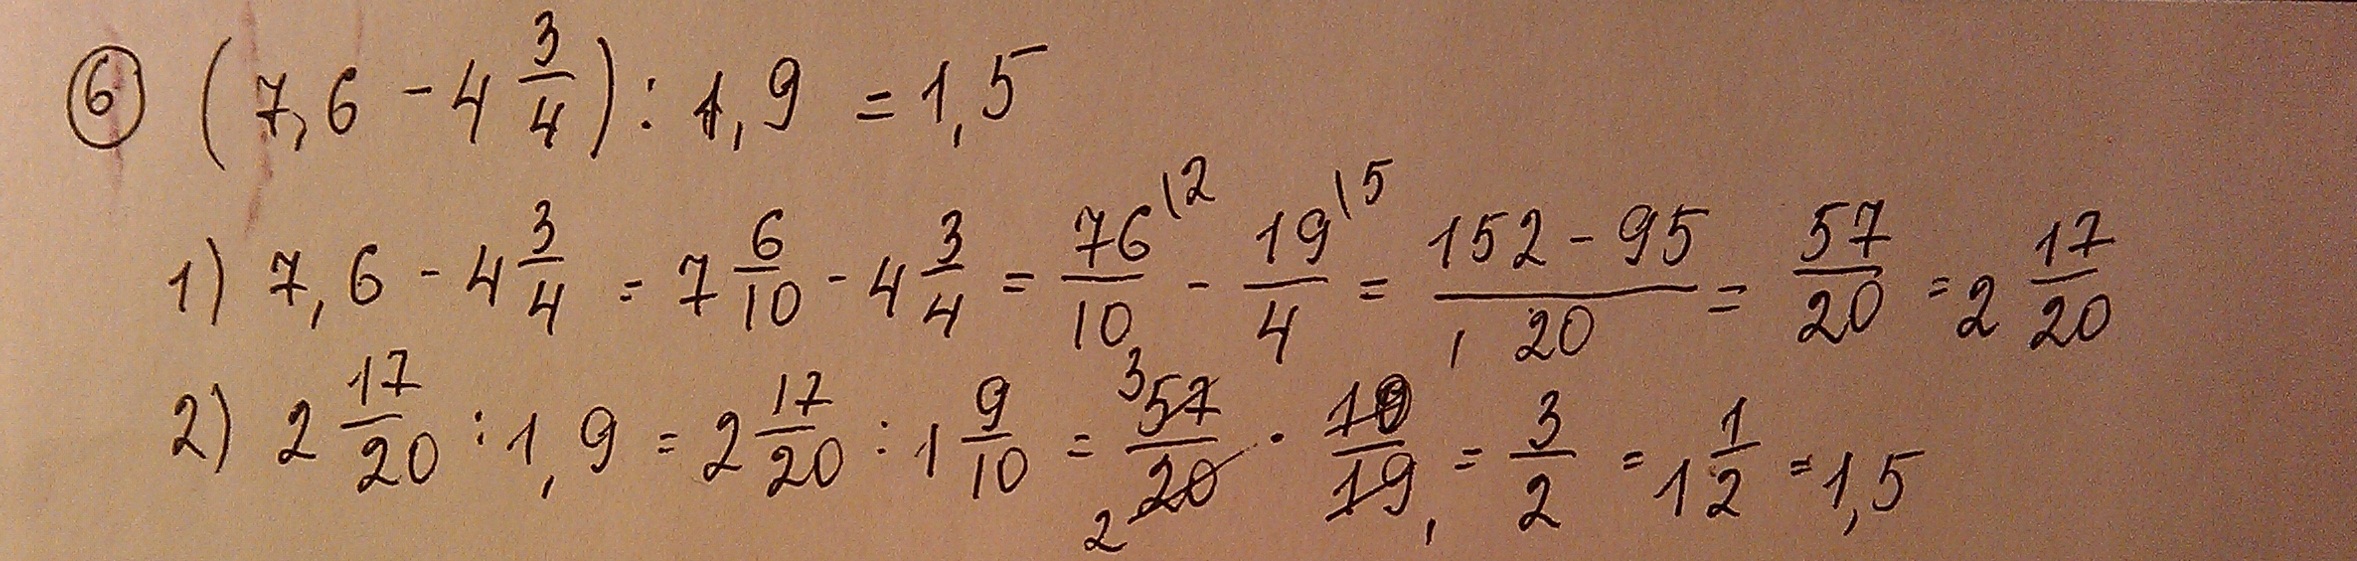 ⑥ (7,6 - 4 3/4) : 1,9 = 1,5
1) 7,6 - 4 3/4 = 7 6/10 - 4 3/4 = 76\2/10 - 19\5/4 = 152 - 95/20 = 57/20 = 2 17/20
2) 2 17/20 : 1,9 = 2 17/20 : 1 9/10 = 3 57/20 2 · 10/19 = 3/2 = 1 1/2 = 1,5